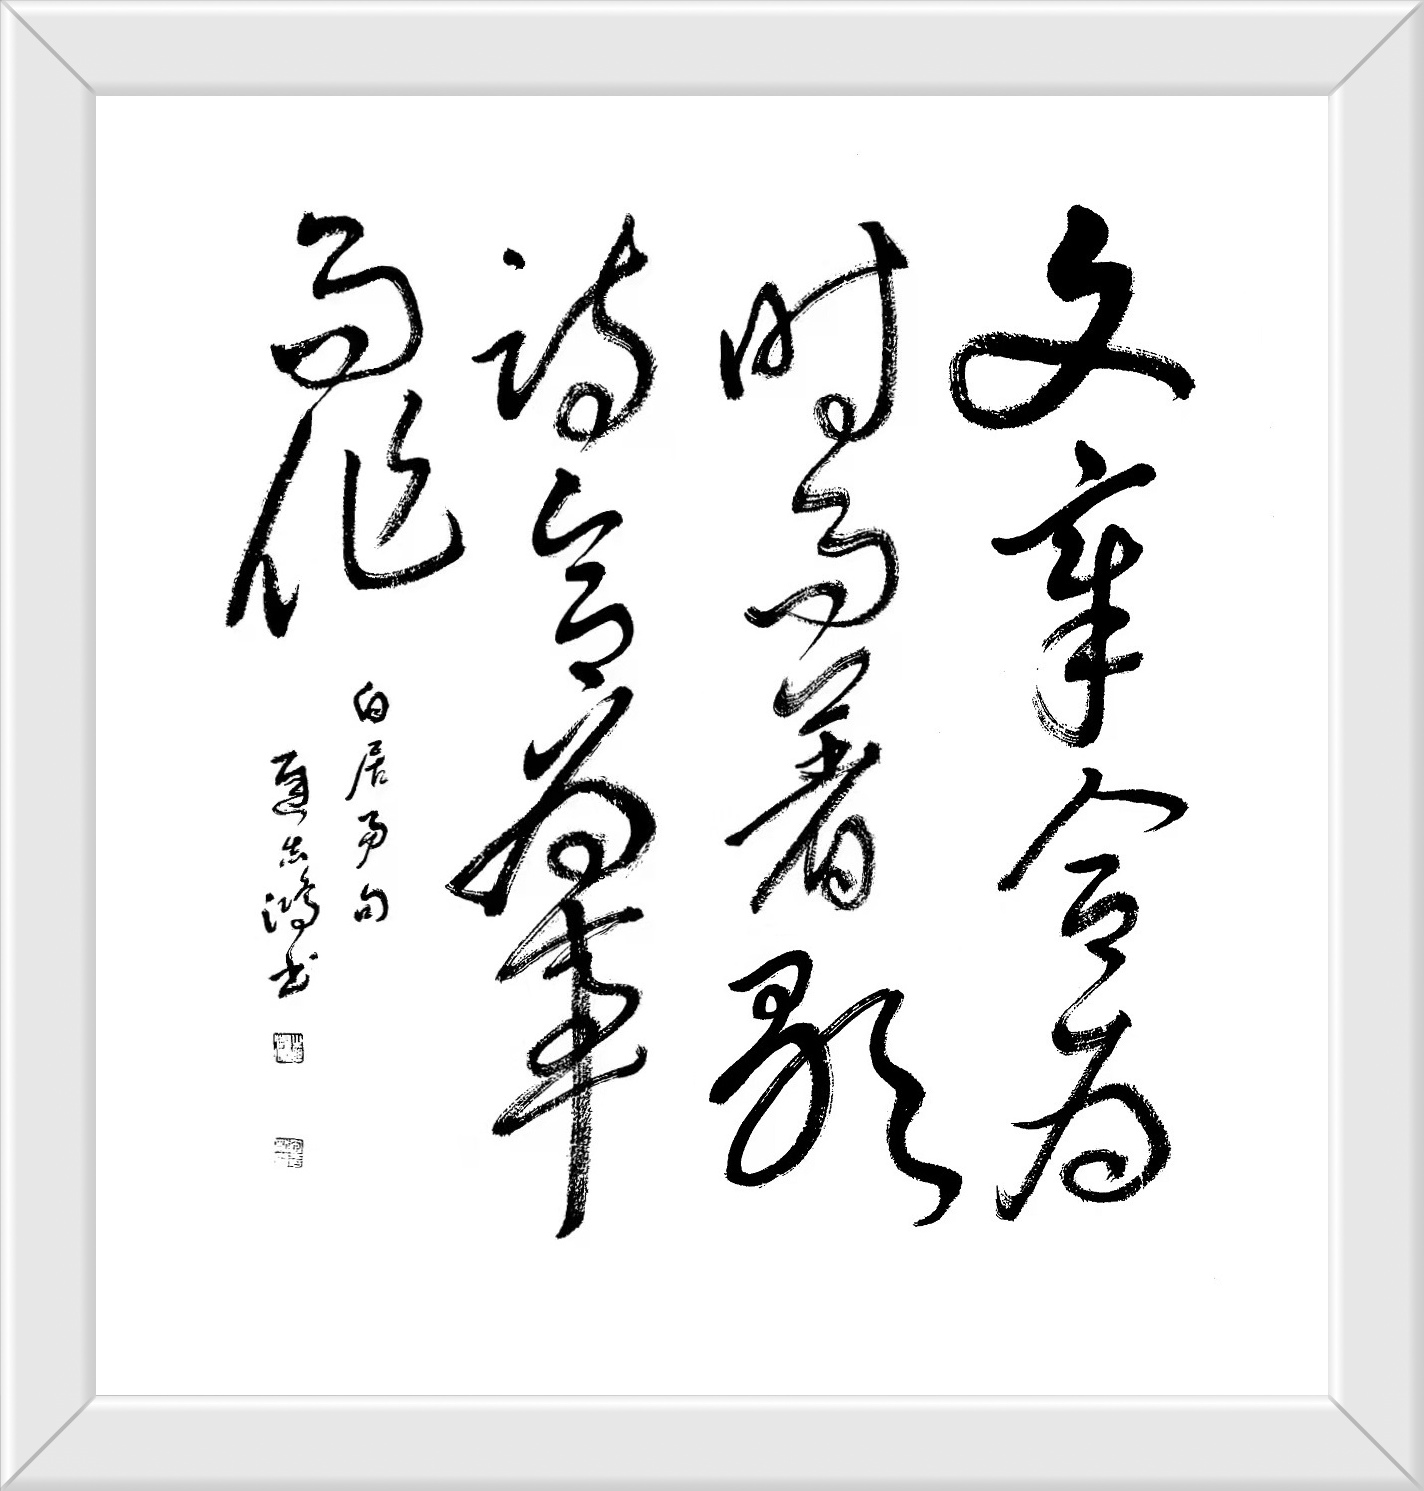 文章合为
时而著歌
诗合为事
而作
白居易句
志鸿书